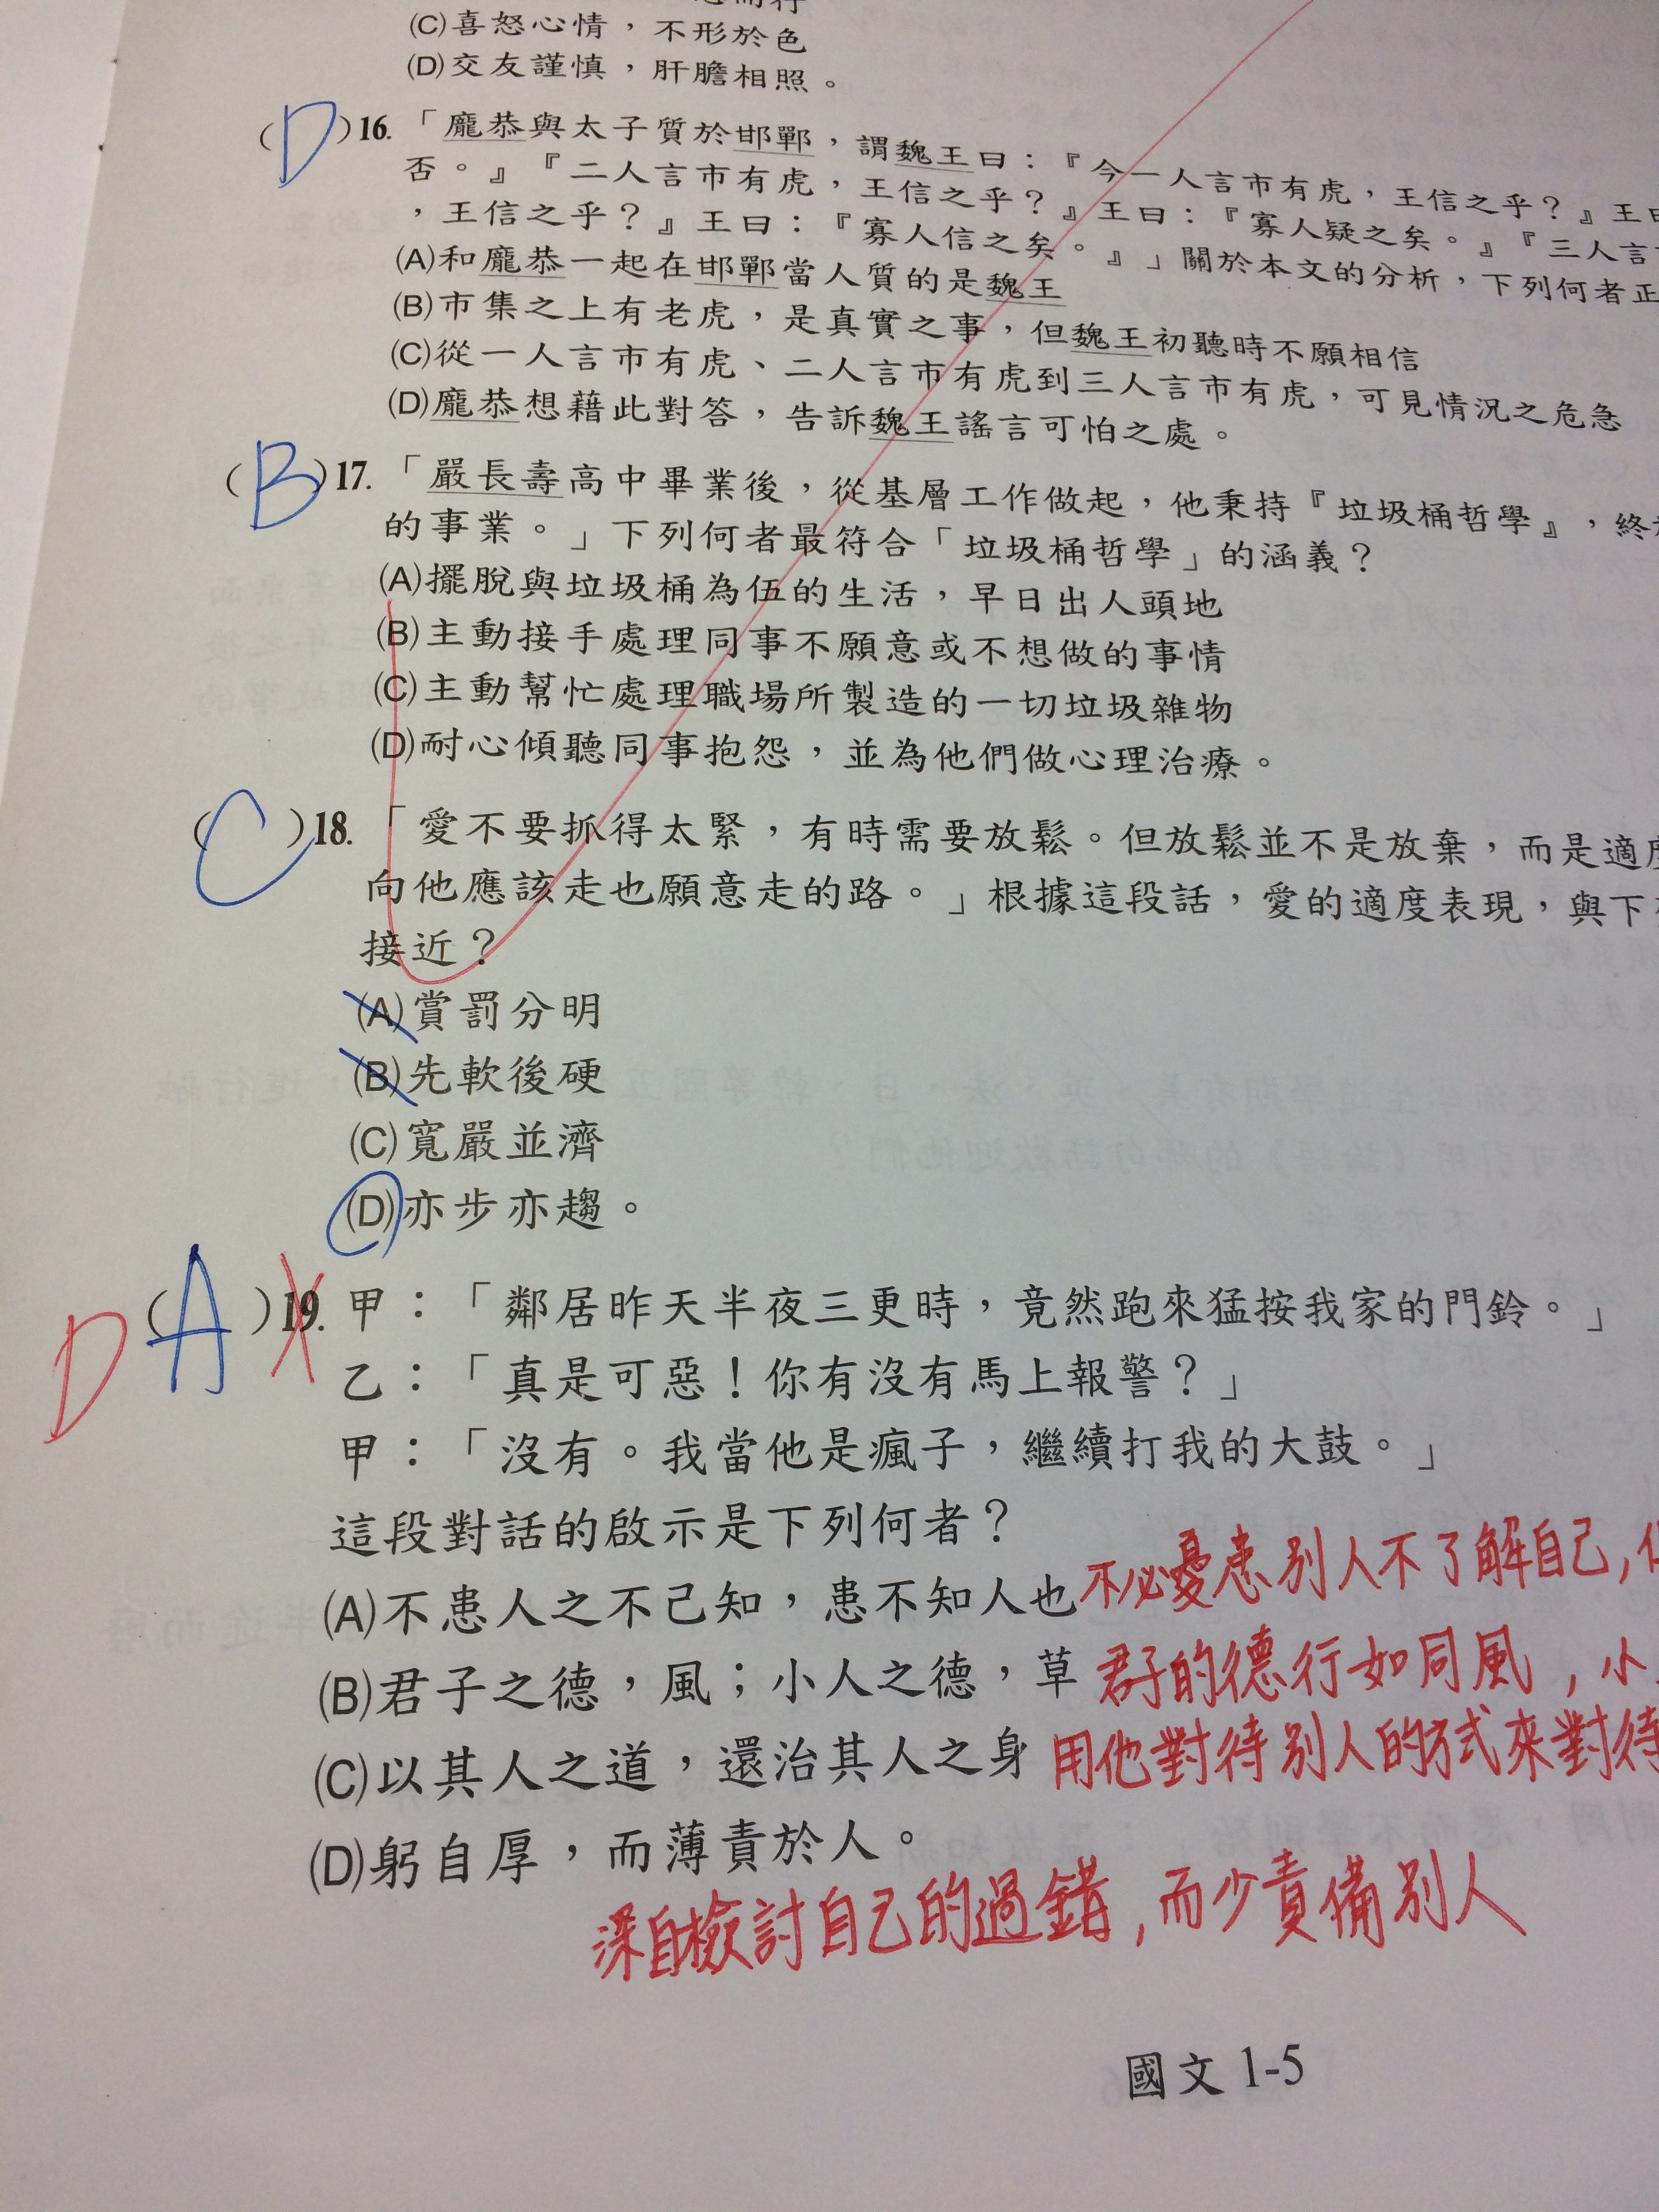 而行
(C)喜怒心情，不形於色
(D)交友謹慎，肝膽相照。
(D)16.「龐恭與太子質於邯鄲，謂魏王曰：『今一人言市有虎，王信之乎？』王曰
否。』『二人言市有虎，王信之乎？』王曰：『寡人疑之矣。』『三人言
，王信之乎？』王曰：『寡人信之矣。』」關於本文的分析，下列何者正
(A)和龐恭一起在邯鄲當人質的是魏王
(B)市集之上有老虎，是真實之事，但魏王初聽時不願相信
(C)從一人言市有虎、二人言市有虎到三人言市有虎，可見情況之危急
(D)龐恭想藉此對答，告訴魏王謠言可怕之處。
(B)17.「嚴長壽高中畢業後，從基層工作做起，他秉持『垃圾桶哲學』，終
的事業。」下列何者最符合「垃圾桶哲學」的涵義？
(A)擺脫與垃圾桶為伍的生活，早日出人頭地
(B)主動接手處理同事不願意或不想做的事情
(C)主動幫忙處理職場所製造的一切垃圾雜物
(D)耐心傾聽同事抱怨，並為他們做心理治療。
(C)18.「愛不要抓得太緊，有時需要放鬆。但放鬆並不是放棄，而是適度
向他應該走也願意走的路。」根據這段話，愛的適度表現，與下
接近？
(A)賞罰分明
(B)先軟後硬
(C)寬嚴並濟
(D)亦步亦趨。
D(A)19.甲：「鄰居昨天半夜三更時，竟然跑來猛按我家的門鈴。」
乙：「真是可惡！你有沒有馬上報警？」
甲：「沒有。我當他是瘋子，繼續打我的大鼓。」
這段對話的啟示是下列何者？
(A)不患人之不己知，患不知人也 不必憂患別人不了解自己，
(B)君子之德，風；小人之德，草 君子的德行如同風，小
(C)以其人之道，還治其人之身 用他對待別人的方式來對待
(D)躬自厚，而薄責於人。
深自檢討自己的過錯，而少責備別人
國文 1-5